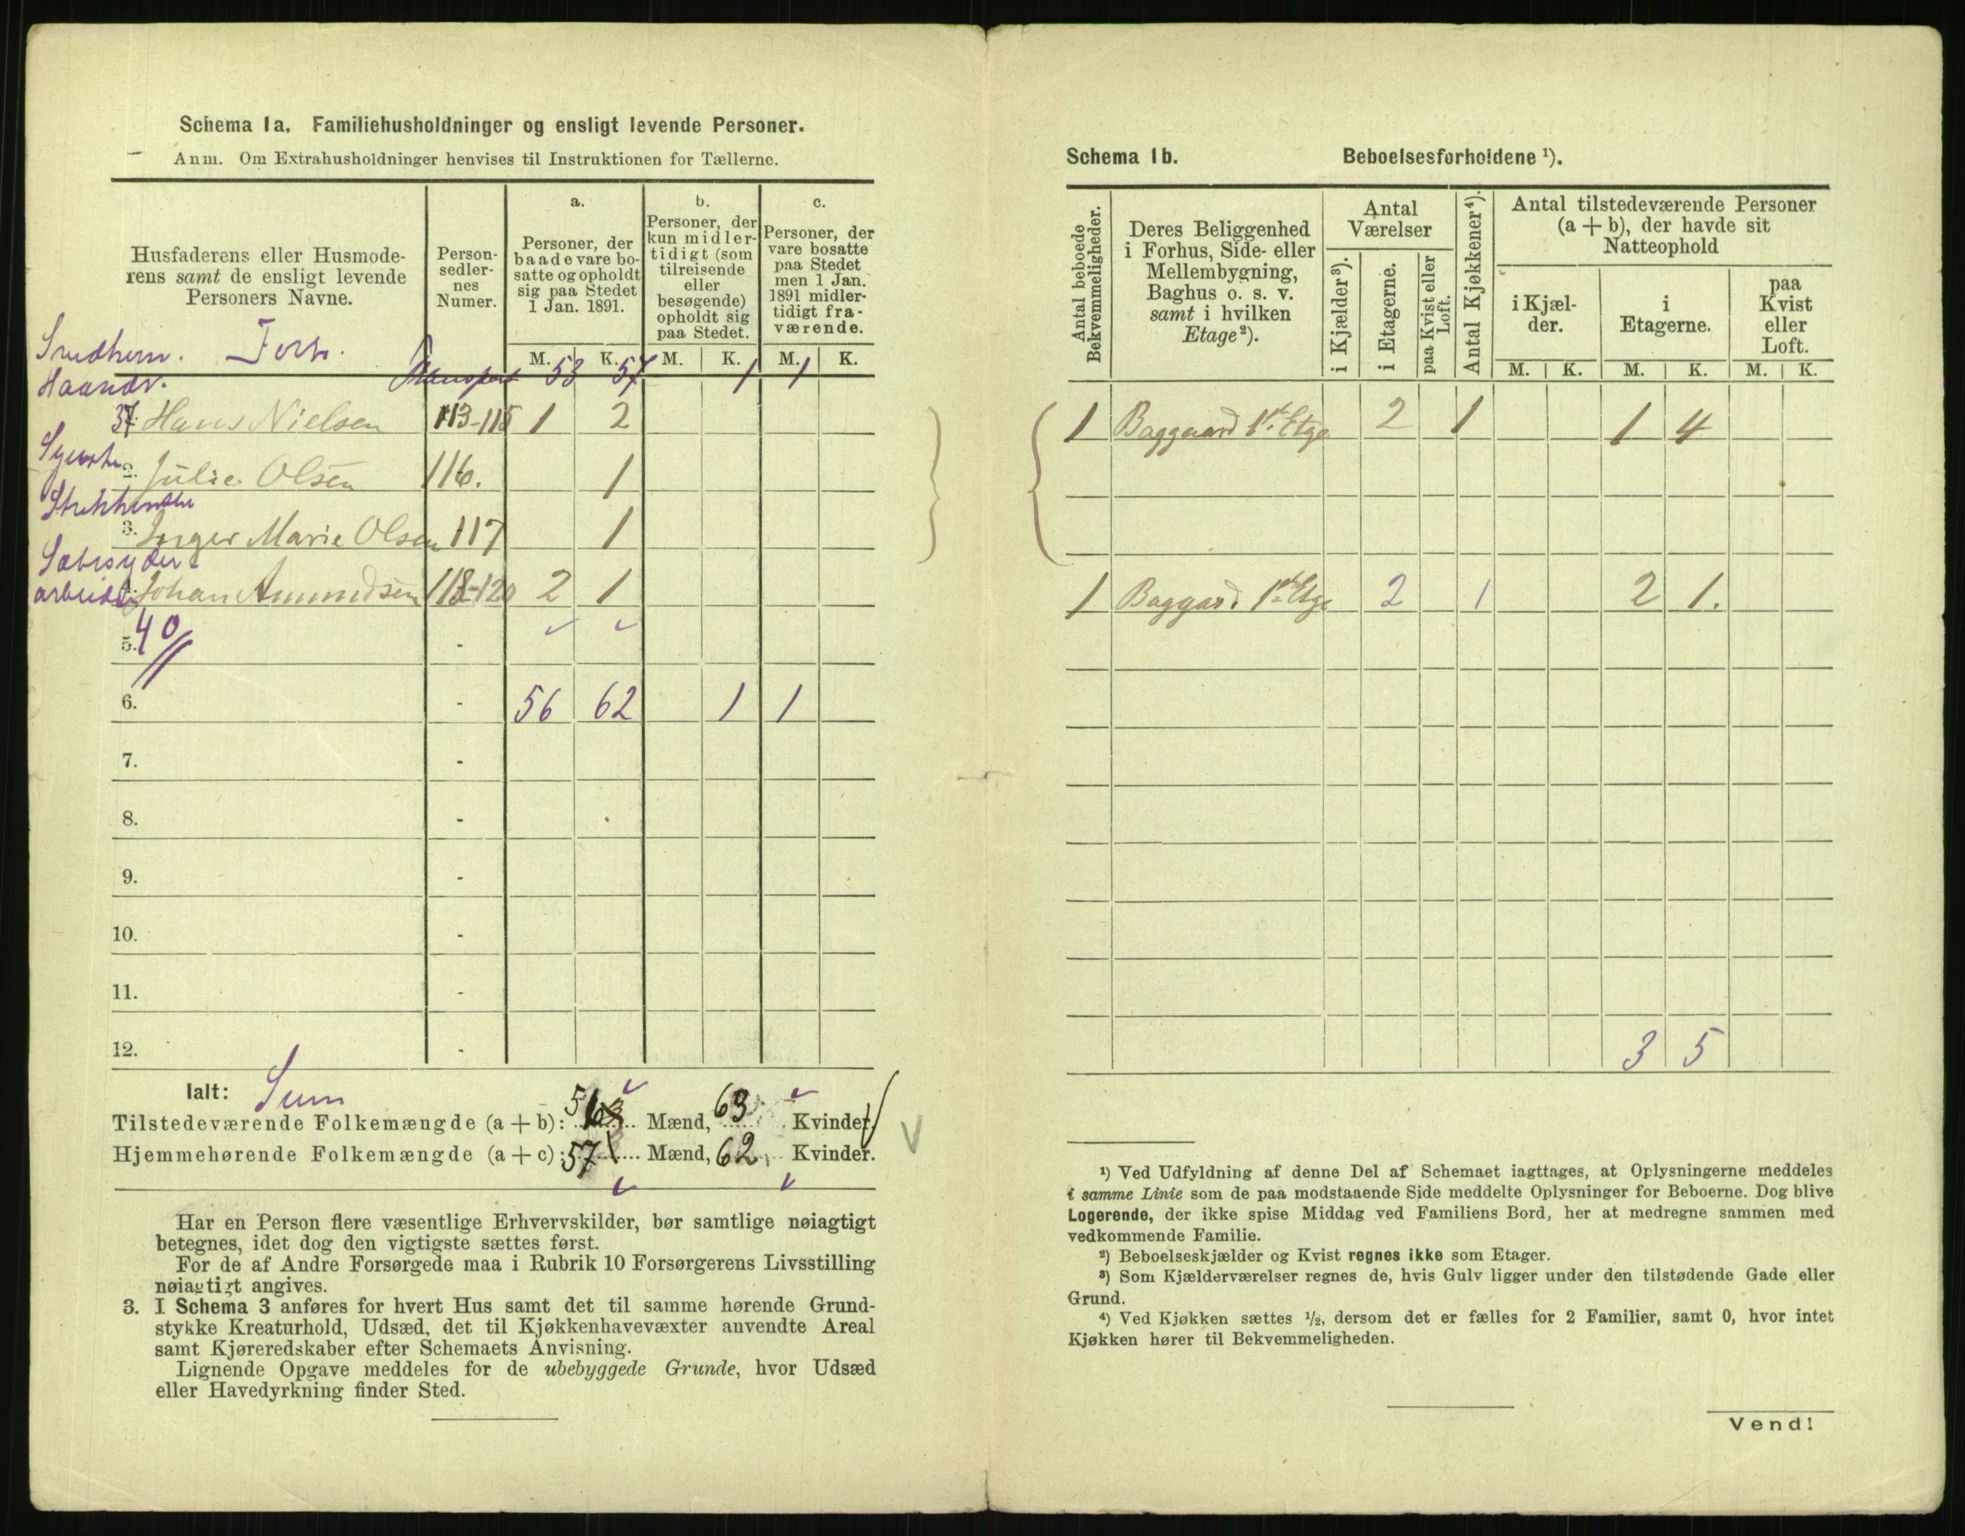 Schema 1a. Familiehusholdninger og ensligt levende Personer.
Anm. Om Extrahusholdninger henvises til Instruktionen for Tællerne.
Husfaderens eller Husmoderens samt de ensligt levende Personers Navne.
Personsedlernes Numer.
a.
Personer, der baade vare bosatte og opholdt sig paa Stedet 1 Jan. 1891.
b.
Personer, der kun midlertidigt (som tilreisende eller besøgende) opholdt sig paa Stedet.
c.
Personer, der vare bosatte paa Stedet men 1 Jan. 1891 midlertidigt fraværende.
M. K. M. K. M. K.
Snedkersv. Forts.
Haandv. Transport 53 57 1 1
37. Hans Nielsen 113-115 1 2
2. Julie Olsen 116. 1
3. Inger Marie Olsen 117 1
Johan Amundsen 118-120 2 1
arbeider
5. 40 -
6. - 56 62 1 1
7. -
8. -
9. -
10. -
11. -
12. -
Ialt: Sum
Tilstedeværende Folkemængde (a + b): 56 Mænd, 63 Kvinder.
Hjemmehørende Folkemængde (a + c): 57 Mænd, 62 Kvinder.
Har en Person flere væsentlige Erhvervskilder, bør samtlige nøiagtigt
betegnes, idet dog den vigtigste sættes først.
For de af Andre Forsørgede maa i Rubrik 10 Forsørgerens Livsstilling
nøiagtigt angives.
3. I Schema 3 anføres for hvert Hus samt det til samme hørende Grund-
stykke Kreaturhold, Udsæd, det til Kjøkkenhavevæxter anvendte Areal
samt Kjøreredskaber efter Schemaets Anvisning.
Lignende Opgave meddeles for de ubebyggede Grunde, hvor Udsæd
eller Havedyrkning finder Sted.
Schema 1b. Beboelsesforholdene ¹).
Antal beboede Bekvemmeligheder.
Deres Beliggenhed i Forhus, Side- eller Mellembygning, Baghus o. s. v. samt i hvilken Etage²).
Antal Værelser
i Kjælder³).
i Etagerne.
paa Kvist eller Loft.
Antal Kjøkkener⁴).
Antal tilstedeværende Personer (a + b), der havde sit Natteophold
i Kjælder.
i Etagerne.
paa Kvist eller Loft.
M. K. M. K. M. K.
1 Baggaard 1ste Etge 2 1 1 4
1 Baggard 1ste Etge 2 1 2 1.
3 5
¹) Ved Udfyldning af denne Del af Schemaet iagttages, at Oplysningerne meddeles
i samme Linie som de paa modstaaende Side meddelte Oplysninger for Beboerne. Dog blive
Logerende, der ikke spise Middag ved Familiens Bord, her at medregne sammen med
vedkommende Familie.
²) Beboelseskjælder og Kvist regnes ikke som Etager.
³) Som Kjælderværelser regnes de, hvis Gulv ligger under den tilstødende Gade eller
Grund.
⁴) Ved Kjøkken sættes ½, dersom det er fælles for 2 Familier, samt 0, hvor intet
Kjøkken hører til Bekvemmeligheden.
Vend!